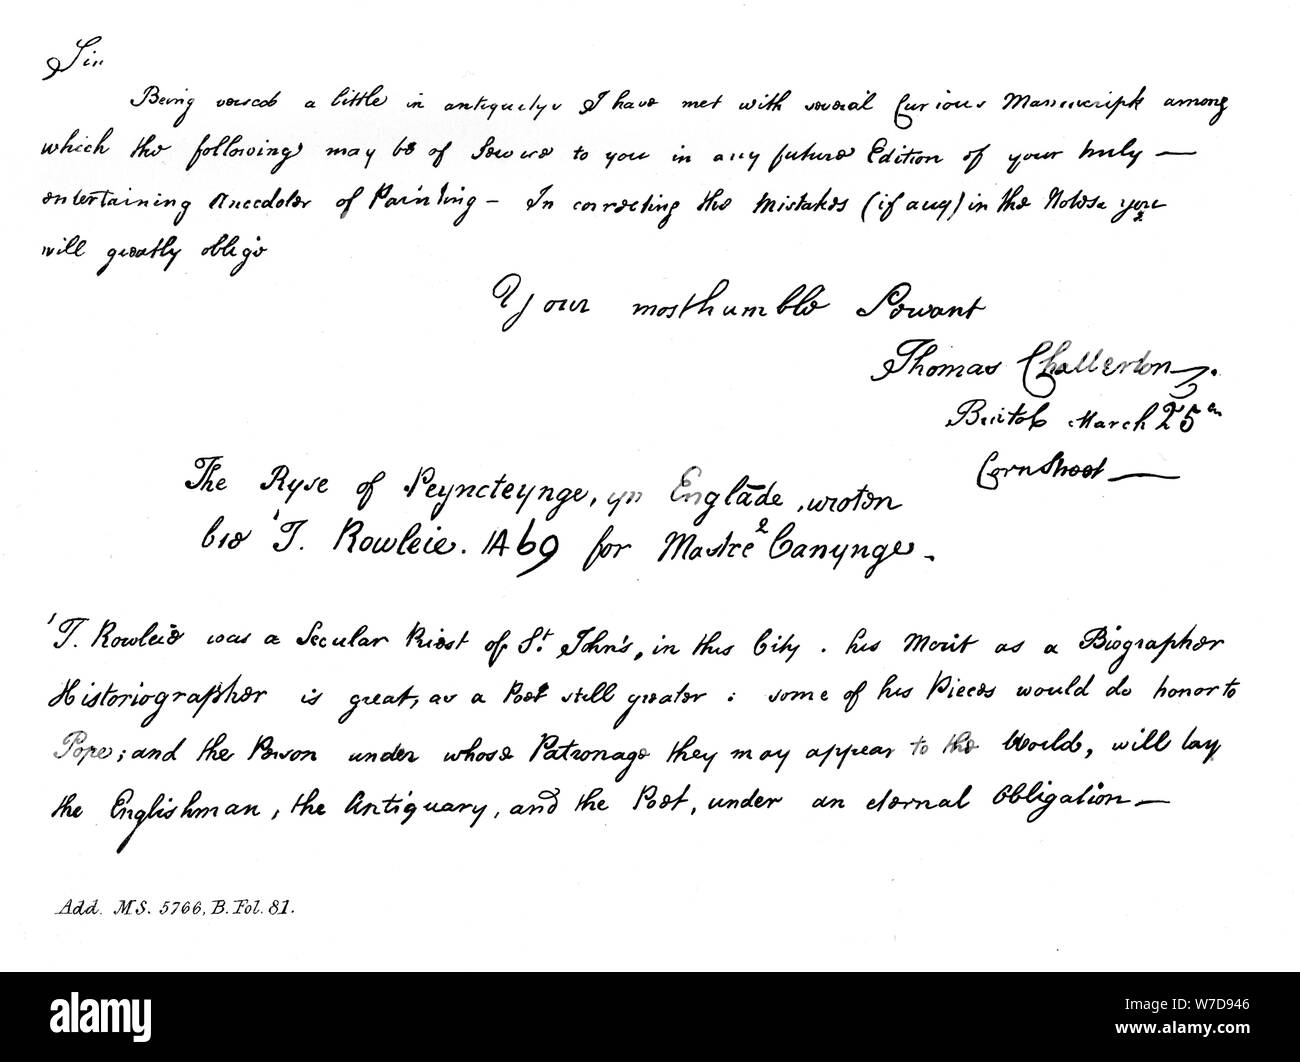 Sir
Being versed a little in antiquitys I have met with several Curious Manuscripts among
which the following may be of Service to you in any future Edition of your truly —
entertaining Anecdotes of Painting — In correcting the Mistakes (if any) in the Notes you
will greatly oblige
Your most humble Servant
Thomas Chatterton
Bristol March 25th
Corn Street —
The Ryse of Peyncteynge, yn Englãde, wroten
bie T. Rowleie. 1469 for Mastre Canynge.
T. Rowleie was a Secular Priest of St. John's, in this City. his Merit as a Biographer
Historiographer is great, as a Poet still greater: some of his Pieces would do honor to
Pope; and the Person under whose Patronage they may appear to the World, will lay
the Englishman, the Antiquary, and the Poet, under an eternal Obligation —
Add. MS. 5766, B. Fol. 81.
alamy
alamy
Image ID: W7D946
www.alamy.com